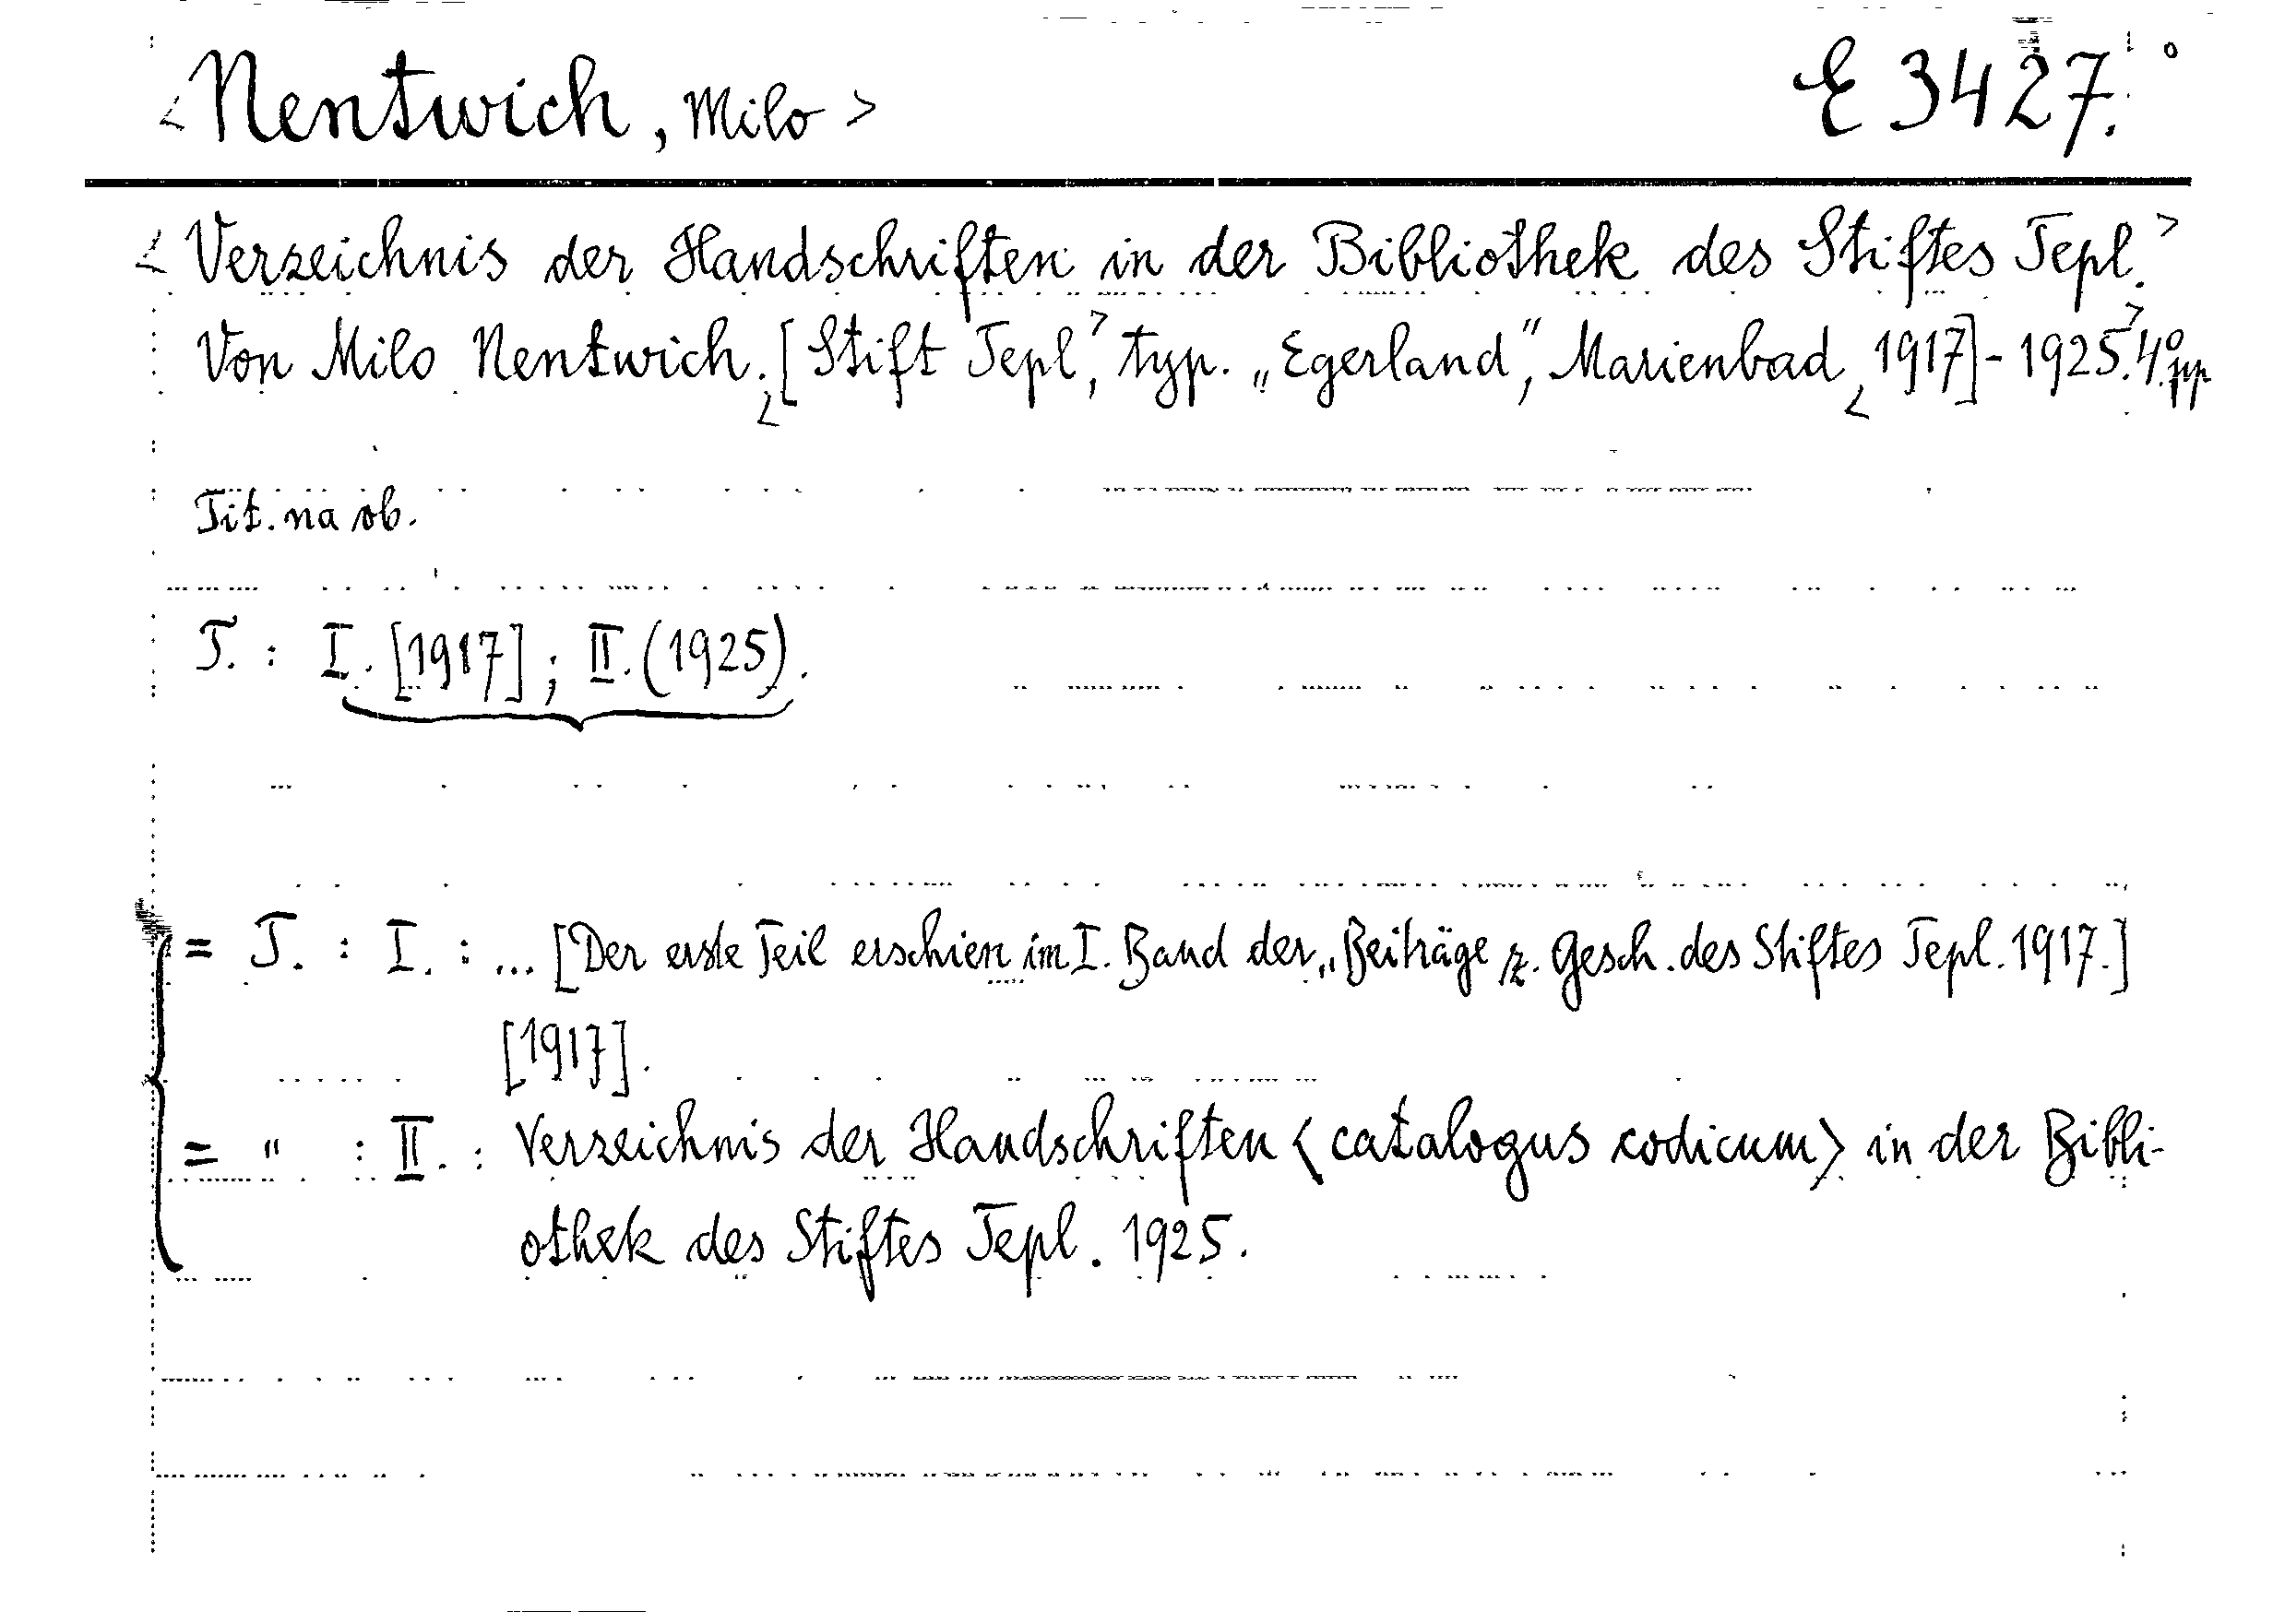 <Nentwich, Milo> E 3427.
<Verzeichnis der Handschriften in der Bibliothek des Stiftes Tepl.>
Von Milo Nentwich.<[Stift Tepl>, typ. „Egerland“, Marienbad<, 1917]-1925.> 4° pp
Tit. na ob.
T. : I. [1917]; II. (1925).
= T. : I. : ... [Der erste Teil erschien im I. Band der „Beiträge z. Gesch. des Stiftes Tepl. 1917.]
[1917].
= " : II. : Verzeichnis der Handschriften <catalogus codicum> in der Bibli-
othek des Stiftes Tepl. 1925.